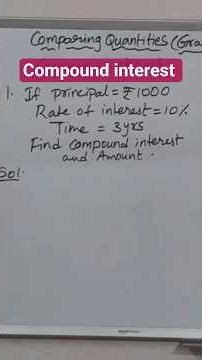 Comparing Quantities (Gra
Compound interest
1. If principal = ₹1000
Rate of interest = 10%
Time = 3yrs
Find compound interest
and Amount.
Sol.